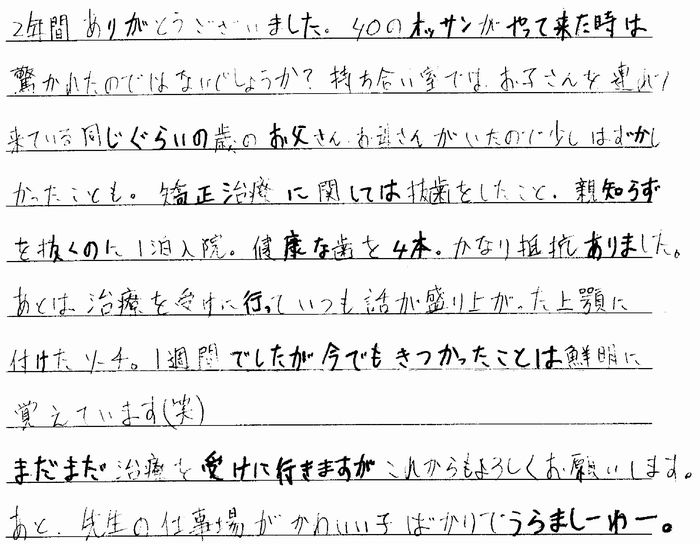 2年間ありがとうございました。40のオッサンがやって来た時は
驚かれたのではないでしょうか?持ち合い室では、お子さんを連れて
来ている同じぐらいの歳のお父さん、お母さんがいたので少しはずかし
かったことも。矯正治療に関しては抜歯をしたこと、親知らず
を抜くのに1泊入院。健康な歯を4本。かなり抵抗ありました。
あとは、治療を受けに行っていつも話が盛り上がった上顎に
付けたリーチ。1週間でしたが今でもきつかったことは鮮明に
覚えています(笑)
まだまだ治療を受けに行きますがこれからもよろしくお願いします。
あと、先生の仕事場がかわいい子ばかりでうらましーわー。